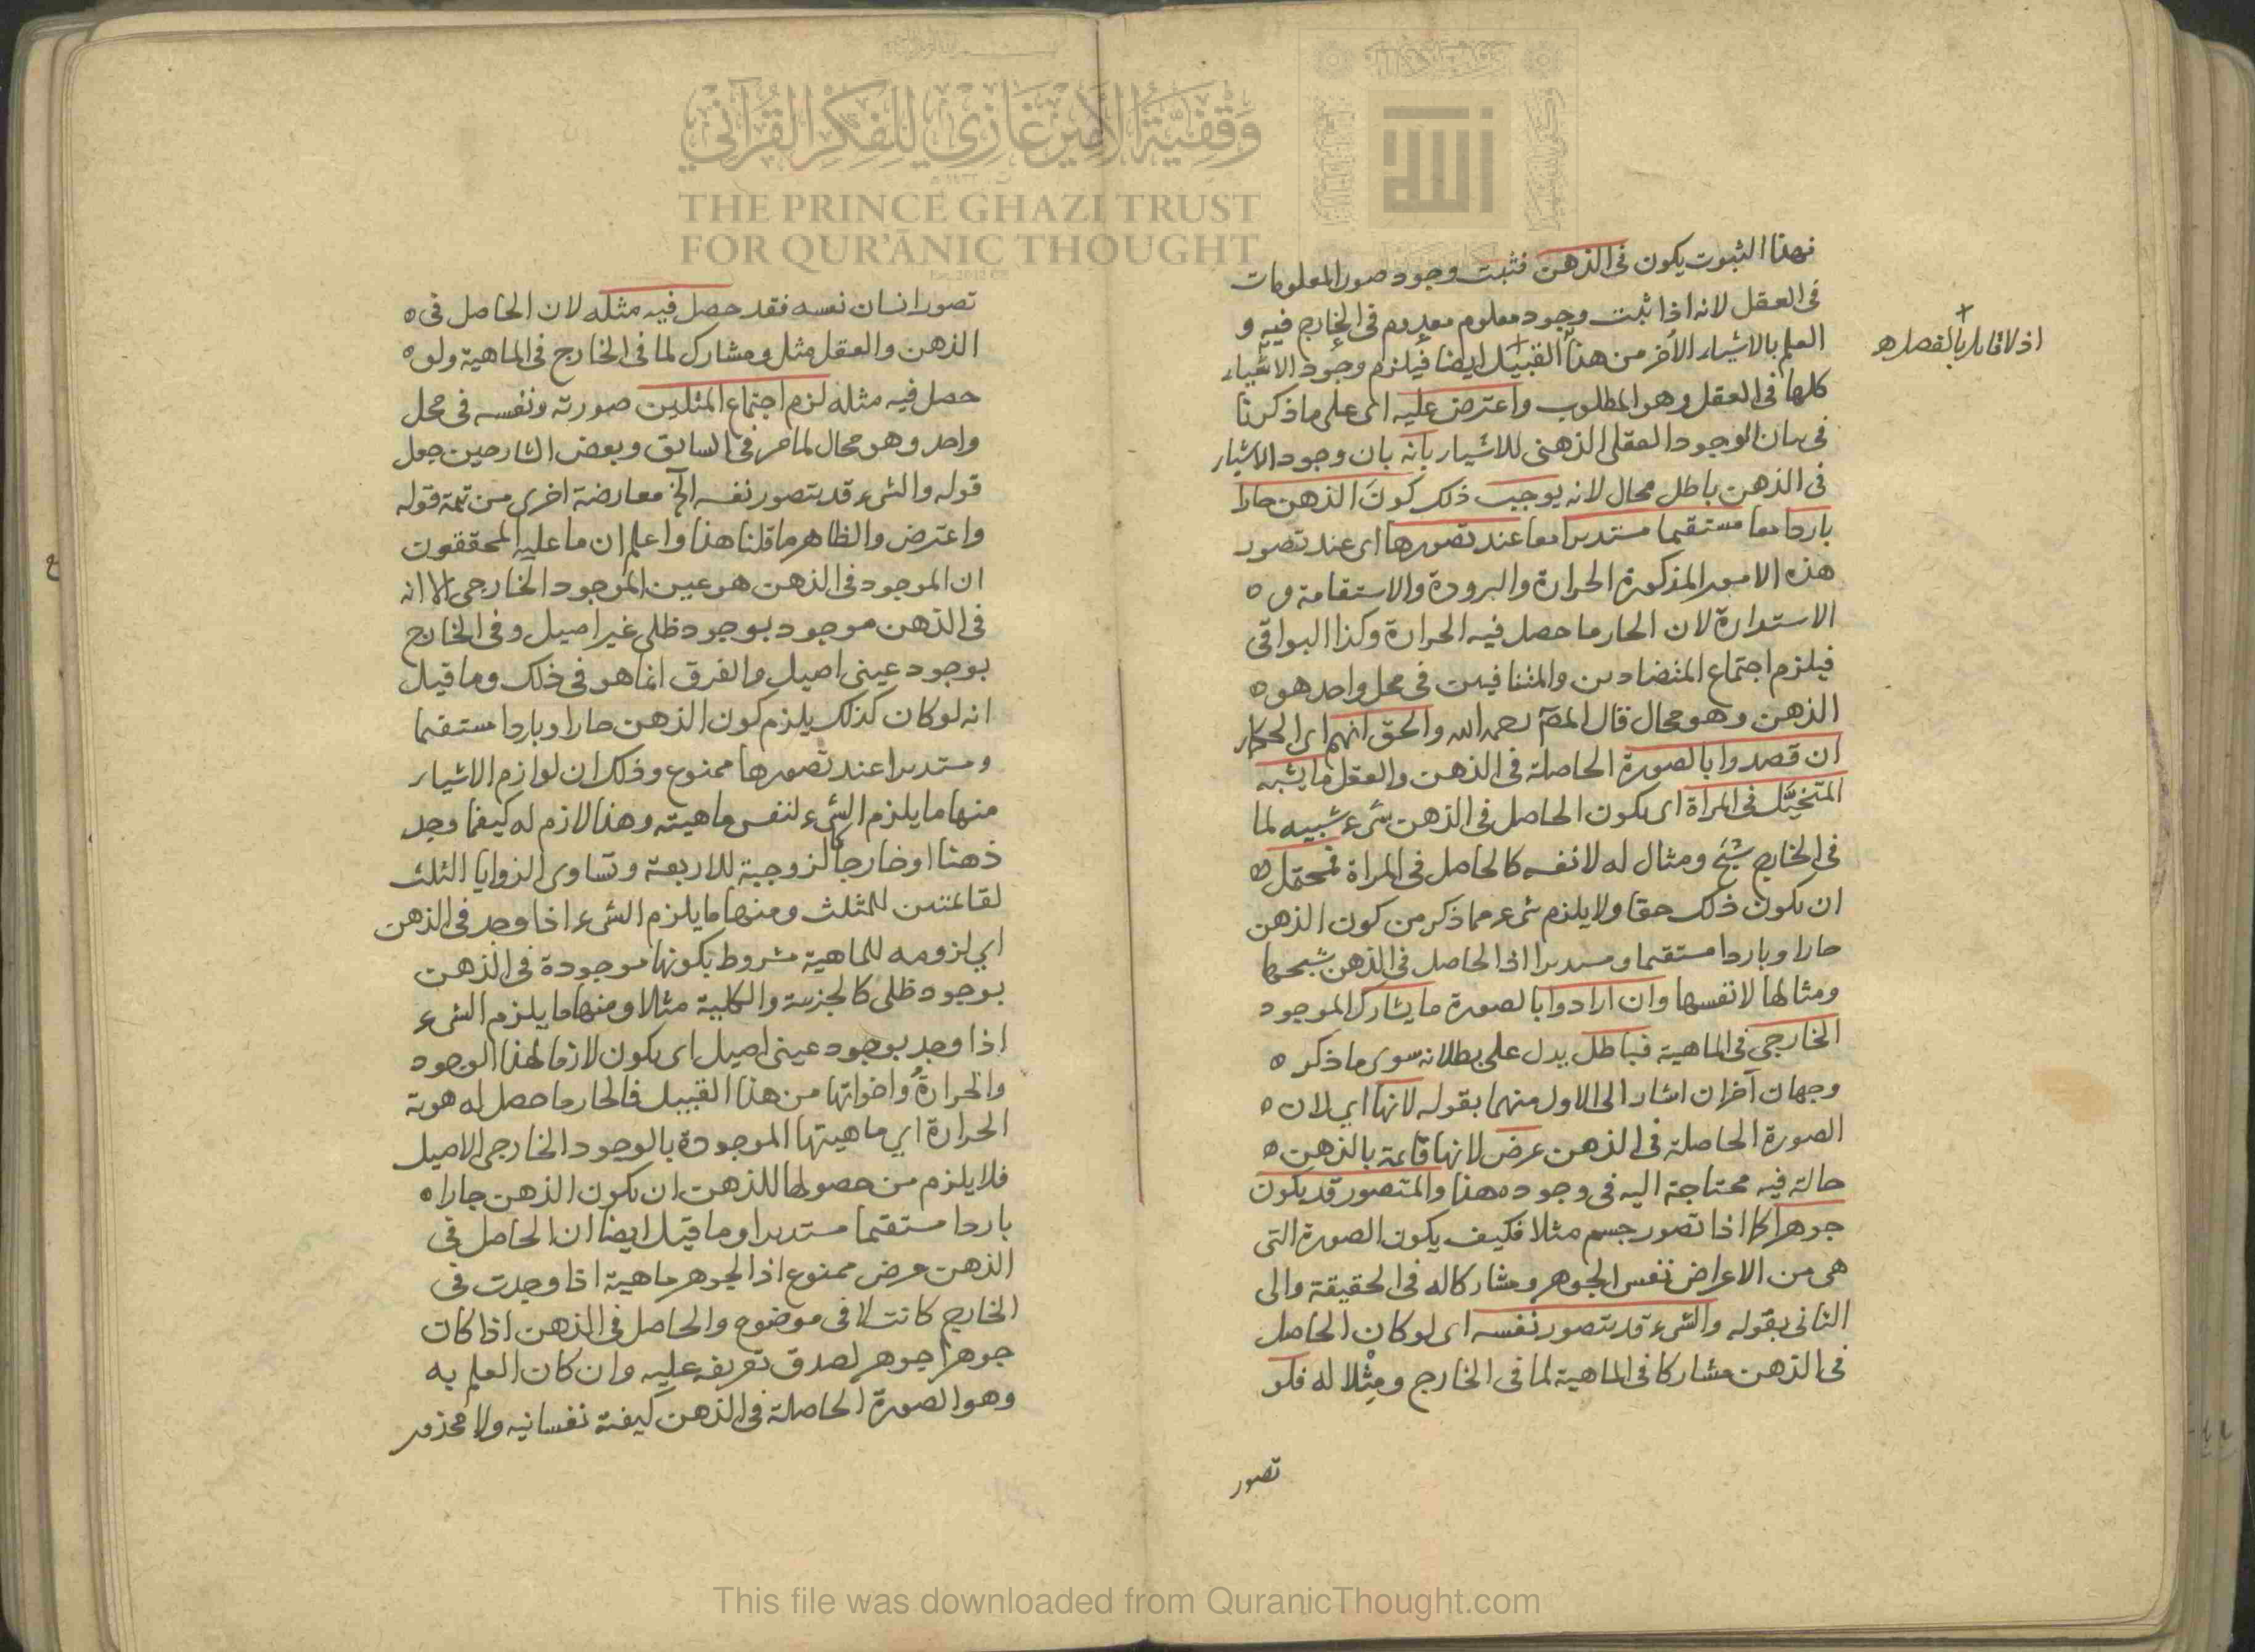 فهذا الثبوت يكون في الذهن فثبت وجود صور المعلومات
في العقل لانه اذا ثبت وجود معلوم معدوم في الخارج فيه و
العلم بالاشياء الأخر من هذا القبيل ايضا فيلزم وجود الاشياء
اذ لا قائل بالفصل
كلها في العقل وهو المطلوب واعترض عليه اى على ما ذكرنا
في بيان الوجود العقلى الذهنى للاشياء بانه بان وجود الاشياء
في الذهن باطل محال لانه يوجب ذلك كون الذهن حارا
باردا معا مستقيما مستديرا معا عند تصورها اى عند تصور
هذه الامور المذكورة الحرارة والبرودة والاستقامة و
الاستدارة لان الحار ما حصل فيه الحرارة وكذا البواقى
فيلزم اجتماع المتضادين والمتنافيين في محل واحد هو
الذهن وهو محال قال المصـ رحمه الله والحق انهم اى الحكماء
ان قصدوا بالصورة الحاصلة في الذهن والعقل ما يشبه
المتخيَّل في المرآة اى يكون الحاصل في الذهن شىء شبيه لما
في الخارج شبح ومثال له لا نفسه كالحاصل في المرآة فمحتمل
ان يكون ذلك حقا ولا يلزم شىء مما ذكر من كون الذهن
حارا وباردا مستقيما ومستديرا اذ الحاصل في الذهن شبحها
ومثالها لا نفسها وان ارادوا بالصورة ما يشارك الموجود
الخارجي في الماهية فباطل يدل على بطلانه سوى ما ذكر
وجهان آخران اشار الى الاول منهما بقوله لانها اي لان
الصورة الحاصلة في الذهن عرض لانها قائمة بالذهن
حالة فيه محتاجة اليه في وجوده هذا والمتصور قد يكون
جوهرا كما اذا تصور جسم مثلا فكيف يكون الصورة التى
هى من الاعراض نفس الجوهر ومشاركا له في الحقيقة والى
الثانى بقوله والشىء قد يتصور نفسه اى لو كان الحاصل
في الذهن مشاركا في الماهية لما في الخارج ومِثْلا له فلو
تصور
تصور انسان نفسه فقد حصل فيه مثله لان الحاصل في
الذهن والعقل مثل ومشارك لما في الخارج في الماهية ولو
حصل فيه مثله لزم اجتماع المثلين صورته ونفسه في محل
واحد وهو محال لما مر في السابق وبعض الشارحين جعل
قوله والشىء قد يتصور نفسه الخ معارضة اخرى من تتمة قوله
واعترض والظاهر ما قلنا هذا واعلم ان ما عليه المحققون
ان الموجود في الذهن هو عين الموجود الخارجى الا انه
في الذهن موجود بوجود ظلى غير اصيل وفي الخارج
بوجود عينى اصيل والفرق انما هو في ذلك وما قيل
انه لو كان كذلك يلزم كون الذهن حارا وباردا مستقيما
ومستديرا عند تصورها ممنوع وذلك ان لوازم الاشياء
منها ما يلزم الشىء لنفس ماهيته وهذا لازم له كيفما وجد
ذهنا او خارجا كالزوجية للاربعة وتساوى الزوايا الثلث
لقائمتين للمثلث ومنها ما يلزم الشىء اذا وجد في الذهن
اي لزومه للماهية مشروط بكونها موجودة في الذهن
بوجود ظلى كالجزئية والكلية مثلا ومنها ما يلزم الشىء
اذا وجد بوجود عينى اصيل اى يكون لازما لهذا الوجود
والحرارةُ واخواتها من هذا القبيل فالحار ما حصل له هوية
الحرارة اي ماهيتها الموجودة بالوجود الخارجى الاصيل
فلا يلزم من حصولها للذهن ان يكون الذهن حارا
باردا مستقيما مستديرا وما قيل ايضا ان الحاصل في
الذهن عرض ممنوع اذ الجوهر ماهية اذا وجدت في
الخارج كانت لا في موضوع والحاصل في الذهن اذا كان
جوهرا جوهر لصدق تعريفه عليه وان كان العلم به
وهو الصورة الحاصلة في الذهن كيفية نفسانيه ولا محذور
وقفية الأمير غازي للفكر القرآني
THE PRINCE GHAZI TRUST
FOR QUR'ĀNIC THOUGHT
الله
This file was downloaded from QuranicThought.com